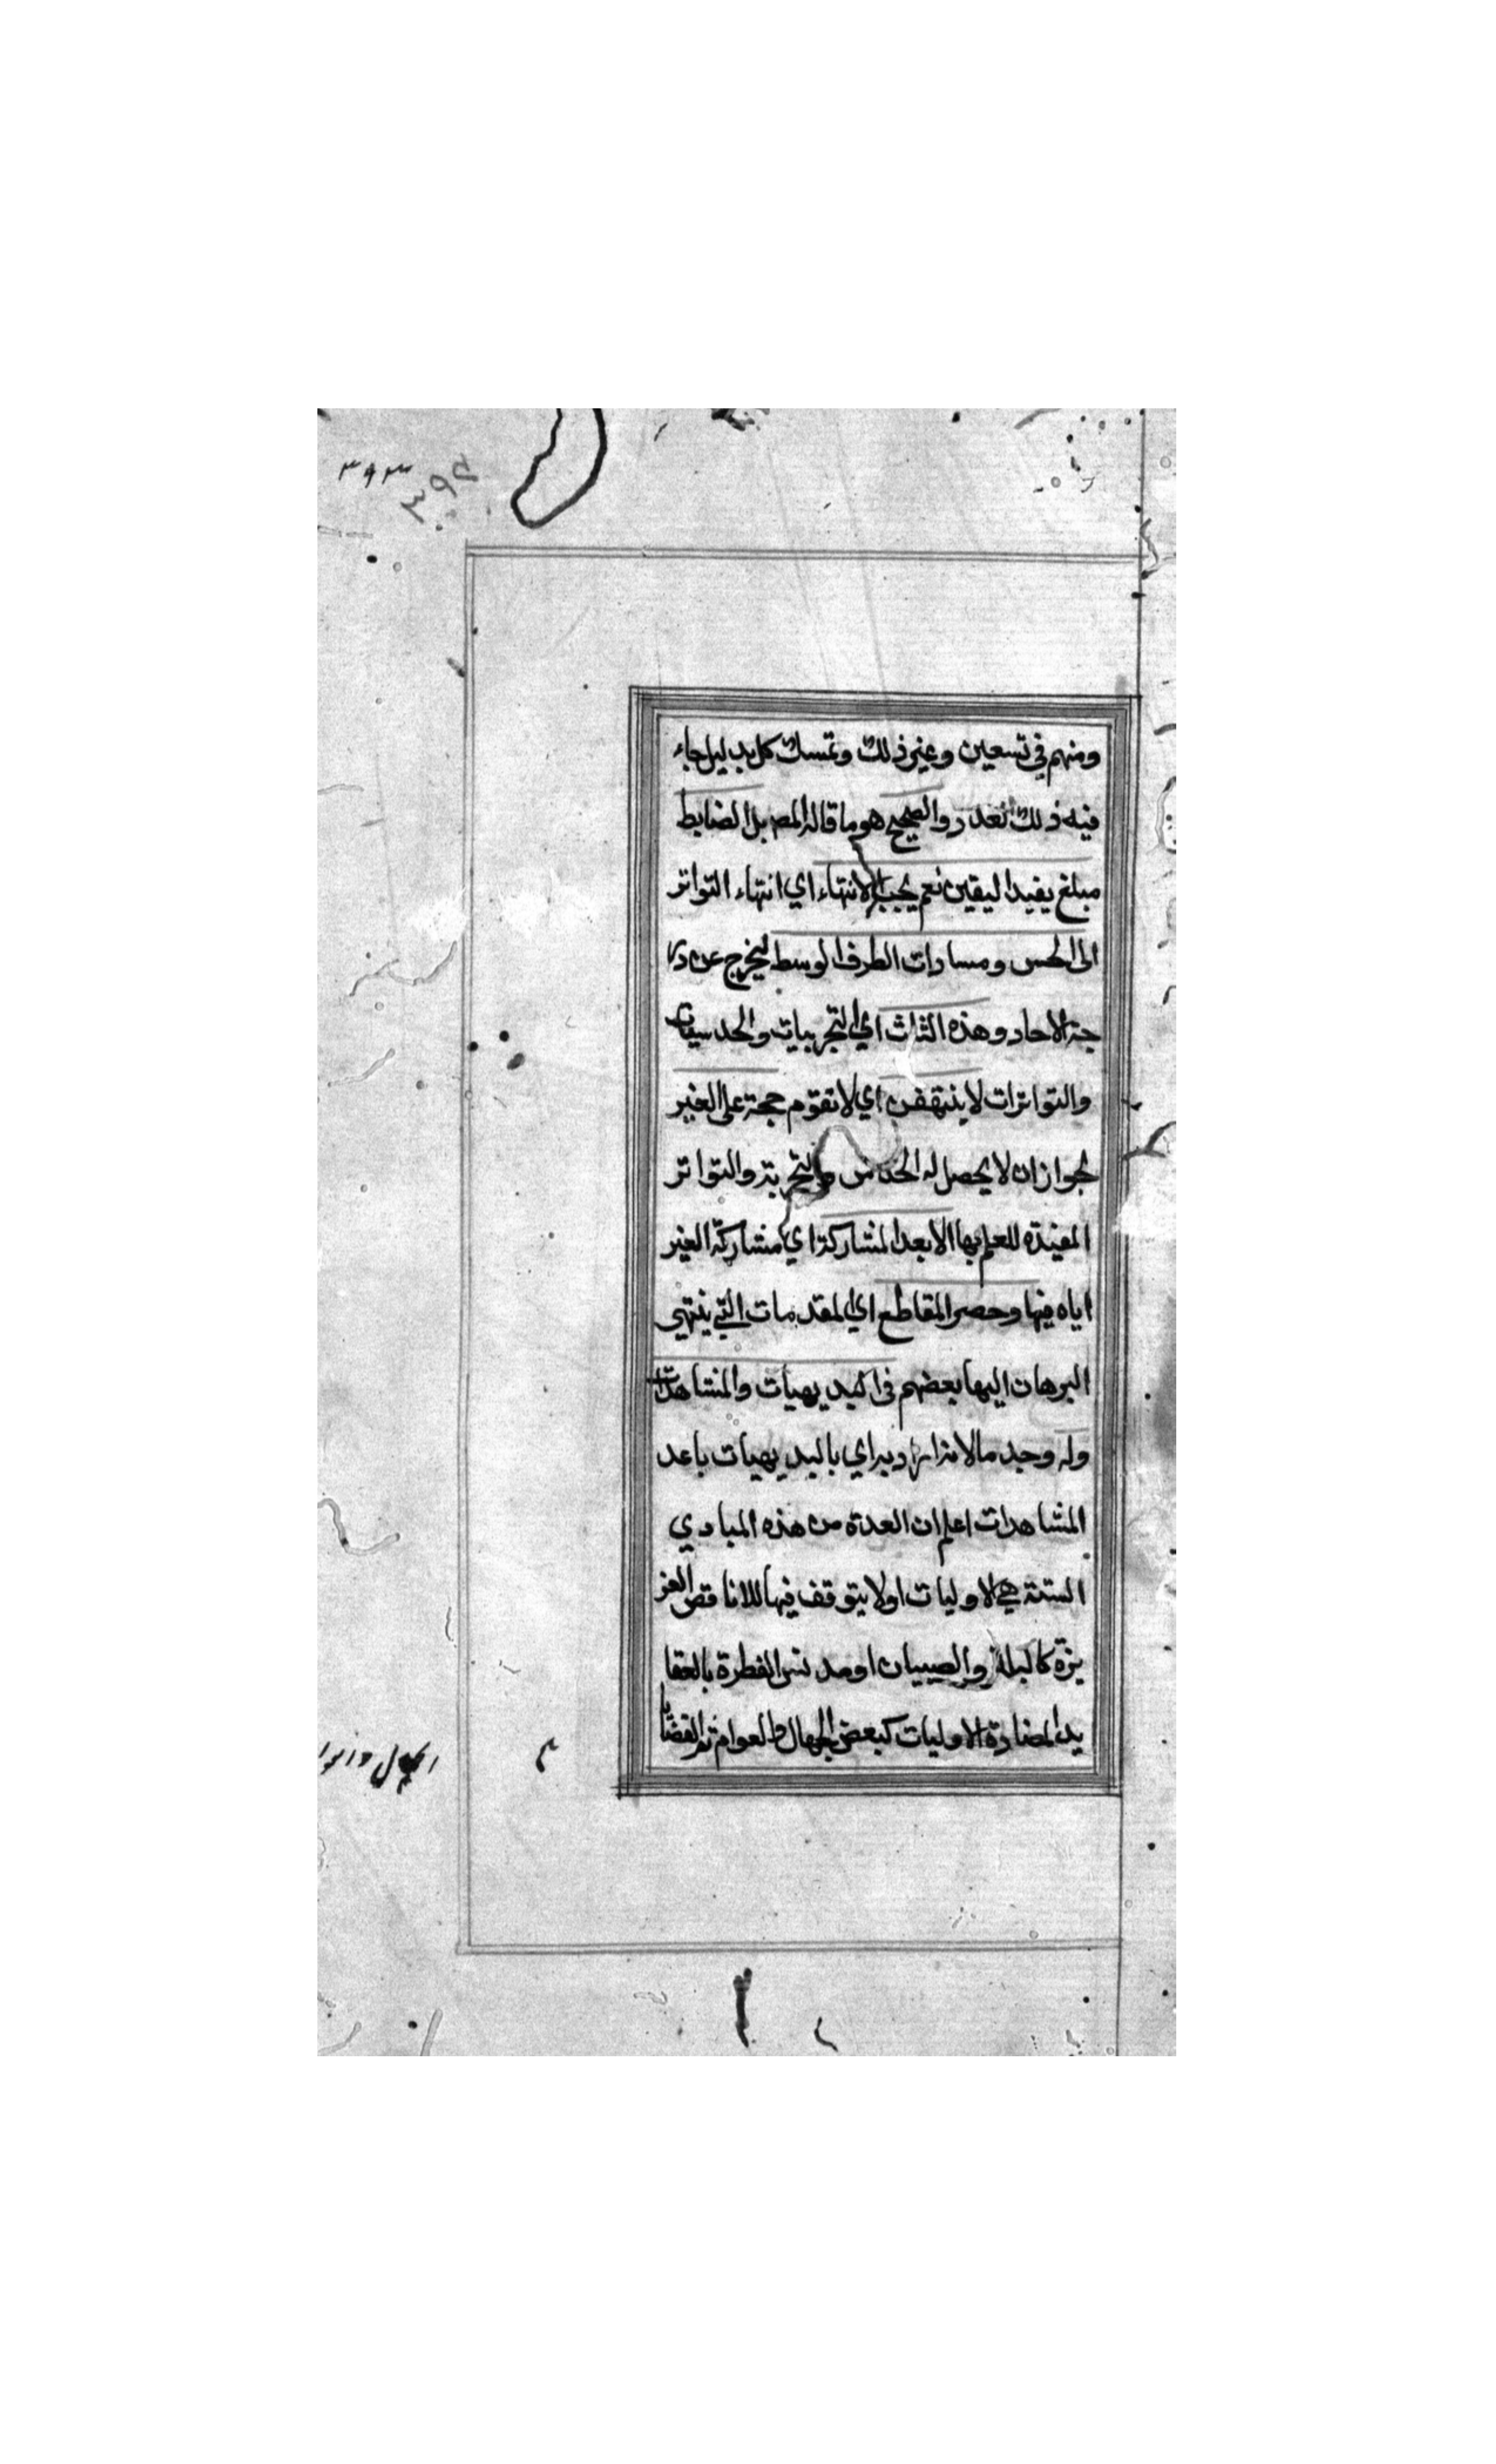 ٣٩٣
٣٩٣
ومنهم في تسعين وغير ذلك وتمسك كل بدليل جاء
فيه ذلك العدد والصحيح هو ما قاله المصـ بل الضابط
مبلغ يفيد اليقين نعم يجب الانتهاء اي انتهاء التواتر
الى الحس ومساوات الطرف الوسط ليخرج عن در
جة الاحاد وهذه الثلث اي التجربيات والحدسيات
والتواترات لا ينتهض اي لا تقوم حجة على الغير
لجواز ان لا يحصل له الحدس والتجربة والتواتر
المفيدة للعلم بها الا بعد المشاركة اي مشاركة الغير
اياه فيها وحصر المقاطع اي المقدمات التي ينتهي
البرهان اليها بعضهم في البديهيات والمشاهدات
وله وجه ما اي بالبديهيات باعد
المشاهدات اعلم ان العمدة من هذه المبادي
الستة هي الاوليات اولا يتوقف فيها الا ناقص الغر
يزة كالبله والصبيان او مدنس الفطرة بالعقا
يد المضادة للاوليات كبعض الجهال والعوام ثم القضايا